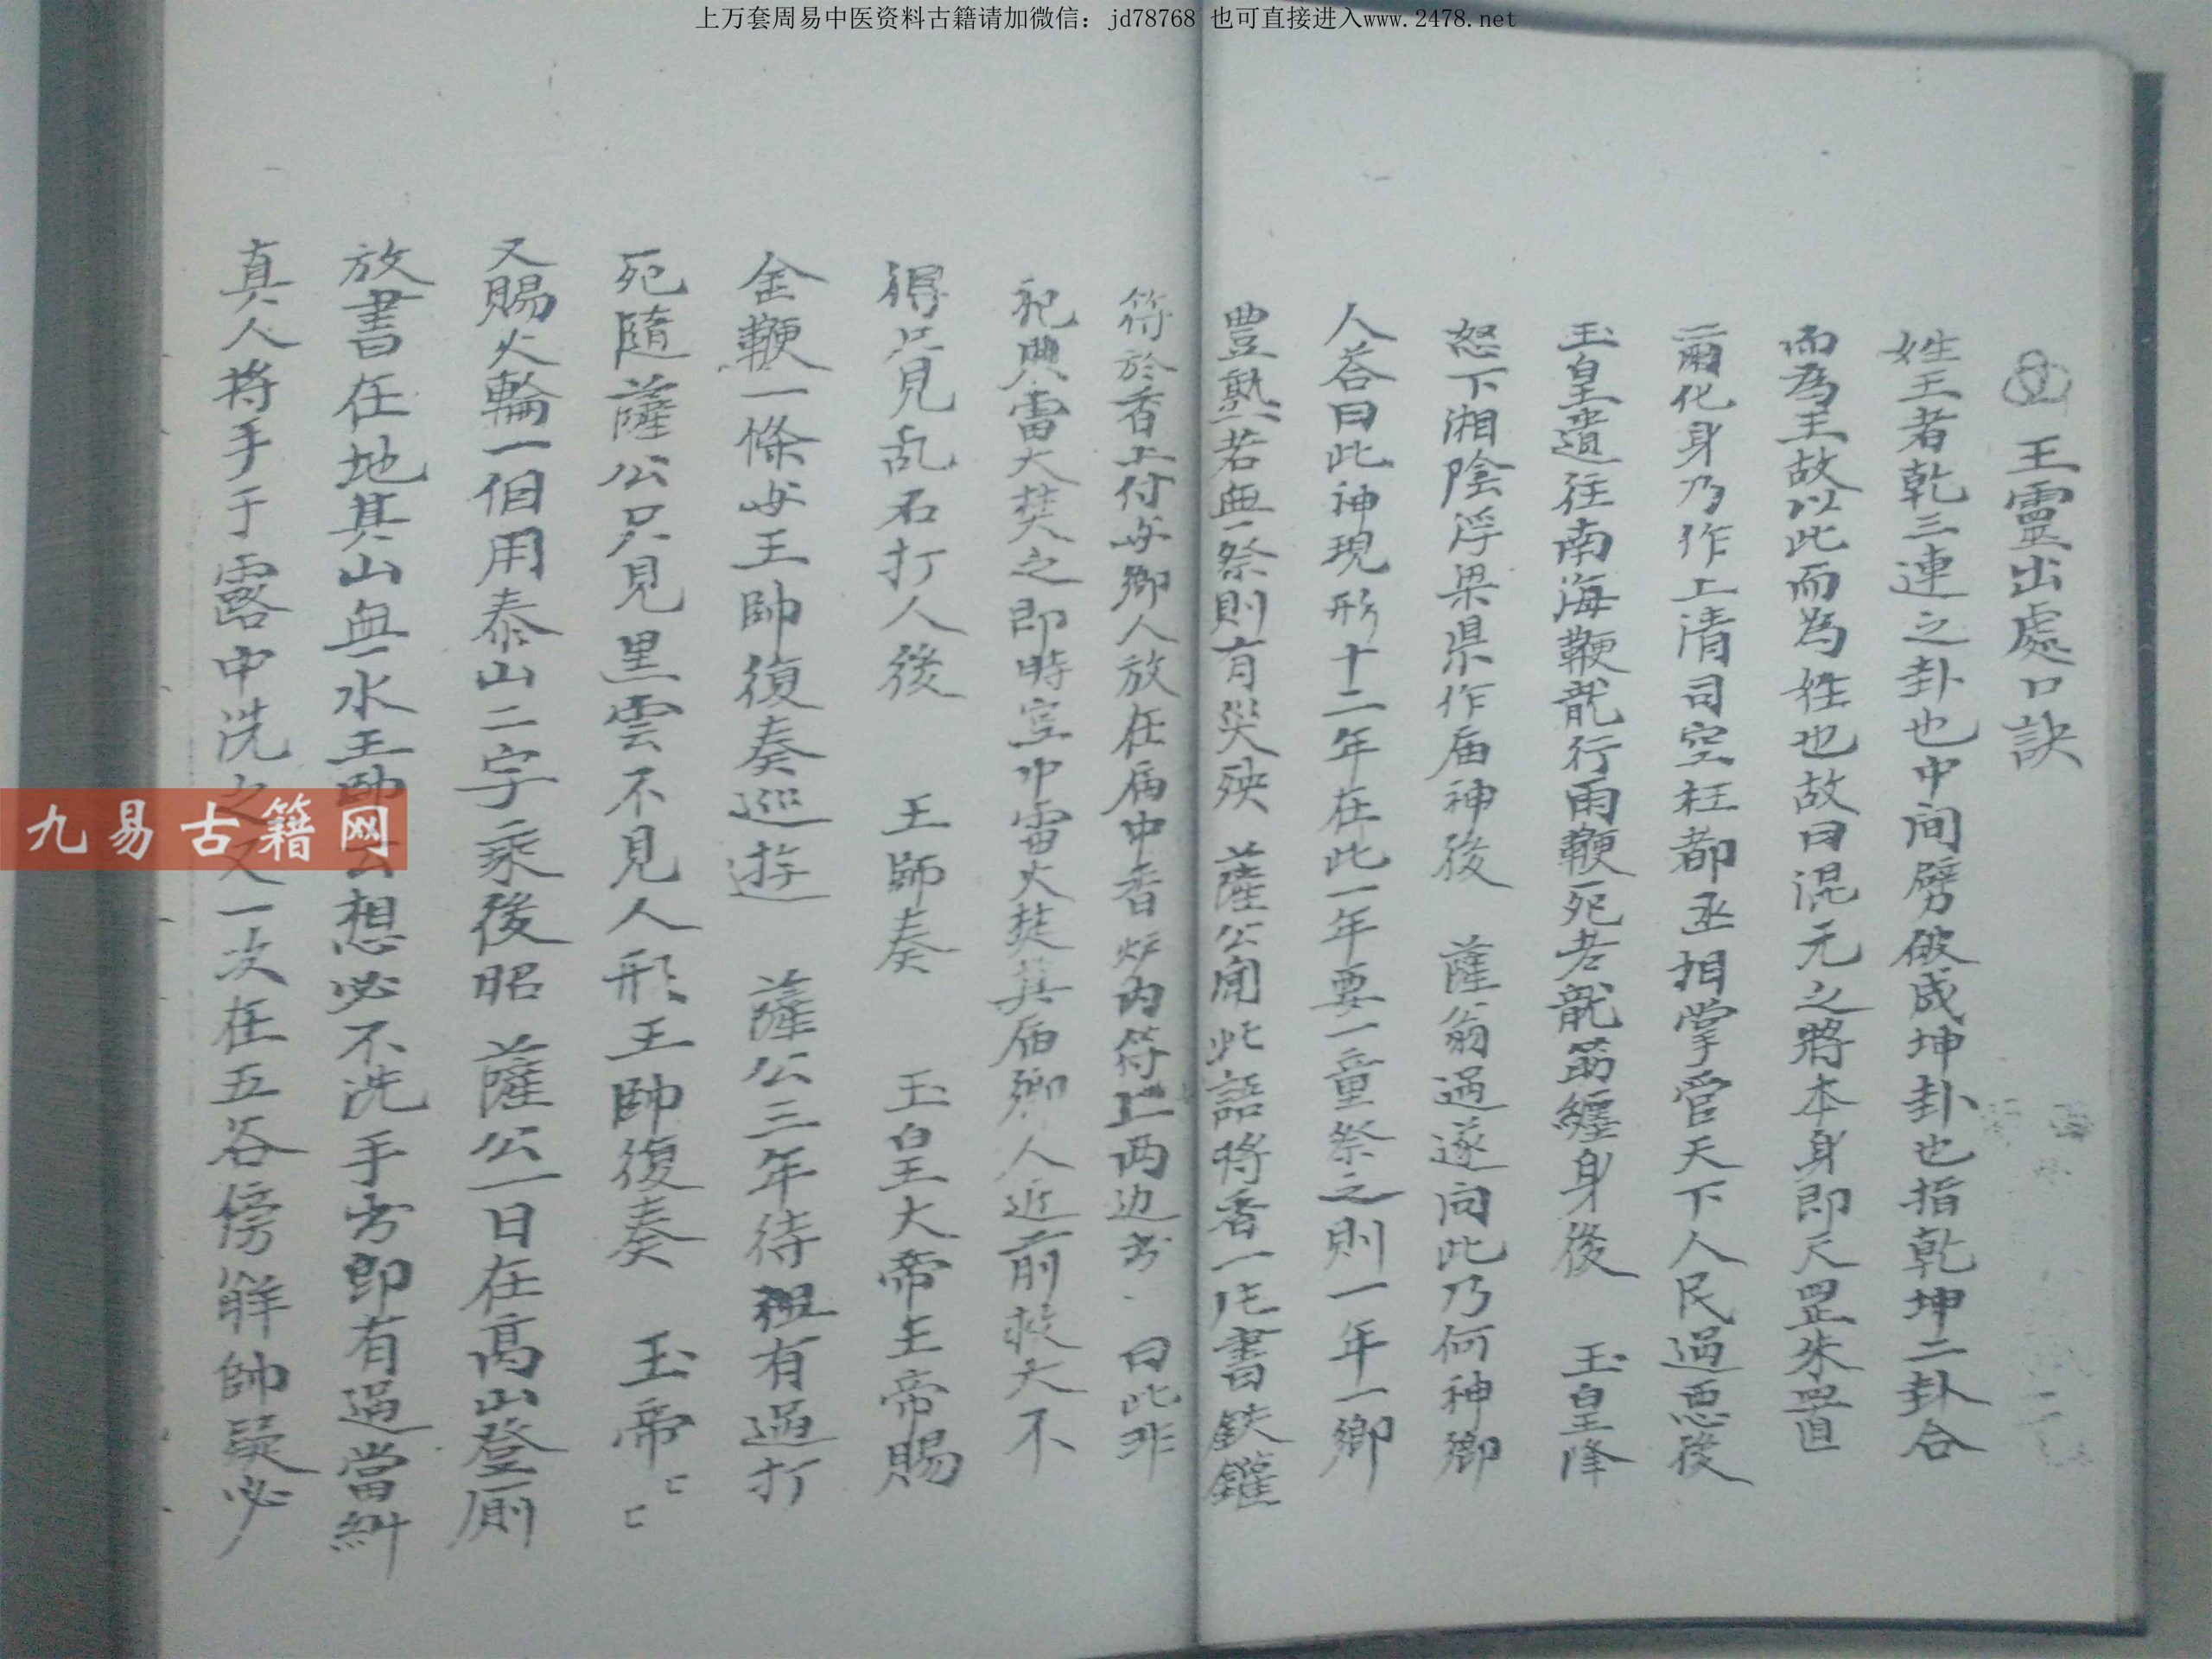 上万套周易中医资料古籍请加微信：jd78768 也可直接进入www.2478.net
王靈出處口訣
姓王者乾三連之卦也中间劈破成坤卦也指乾坤二卦合
而為王故以此而為姓也故曰混元之將本身即天罡朱置
二爾化身乃作上清司空枉都丞相掌管天下人民過惡後
玉皇遣往南海鞭龍行雨鞭死老龍筋纏身後 玉皇降
怒下湘陰浮梁県作庙神後 薩翁過遂问此乃何神鄉
人答曰此神現形十二年在此一年要一童祭之則一年一鄉
豊熟若無祭則有災殃 薩公聞此語將香一片書鉄鑵
符於香上付与鄉人放在庙中香炉内符上两边书 曰此非
祀典雷火焚之即時空中雷火焚其庙鄉人近前救火不
得只見乱石打人後 王師奏 玉皇大帝玉帝賜
金鞭一條与王帥復奏巡遊 薩公三年待祖有過打
死隨薩公只見黑雲不見人形王帥復奏 玉帝〻〻
又賜火輪一個用泰山二字乘後昭 薩公一日在高山登厠
放書在地其山無水王帥云想必不洗手书即有過當糾
真人將手于露中洗之又一次在五谷傍觧帥疑必
九易古籍网